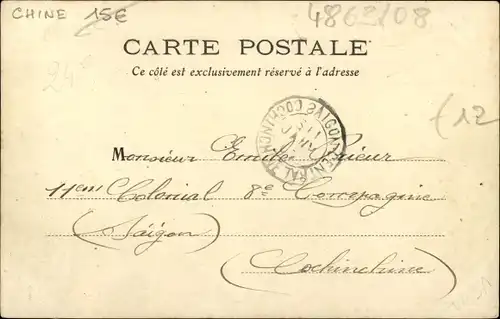 CHINE 15E
4863/08
24
CARTE POSTALE
Ce côté est exclusivement réservé à l'adresse
SAIGON CENTRAL COCHINCHINE
(12
Monsieur Emile
11eme Colonial 8e Compagnie
(Saïgon)
(Cochinchine)